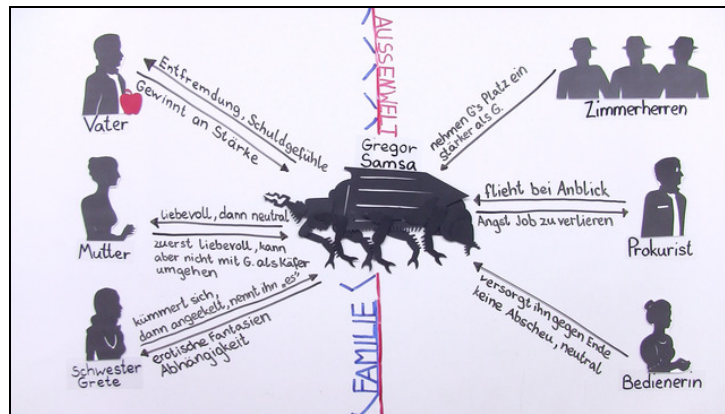 Vater
Entfremdung, Schuldgefühle
Gewinnt an Stärke
Mutter
Liebevoll, dann neutral
zuerst liebevoll, kann
aber nicht mit G. als Käfer
umgehen
Schwester
Grete
kümmert sich,
dann angeekelt, nennt ihn „es“
erotische Fantasien
Abhängigkeit
AUSSENWELT
Gregor
Samsa
FAMILIE
Zimmerherren
nehmen G's Platz ein
stärker als G.
Prokurist
flieht bei Anblick
Angst Job zu verlieren
Bedienerin
versorgt ihn gegen Ende
keine Abscheu, neutral